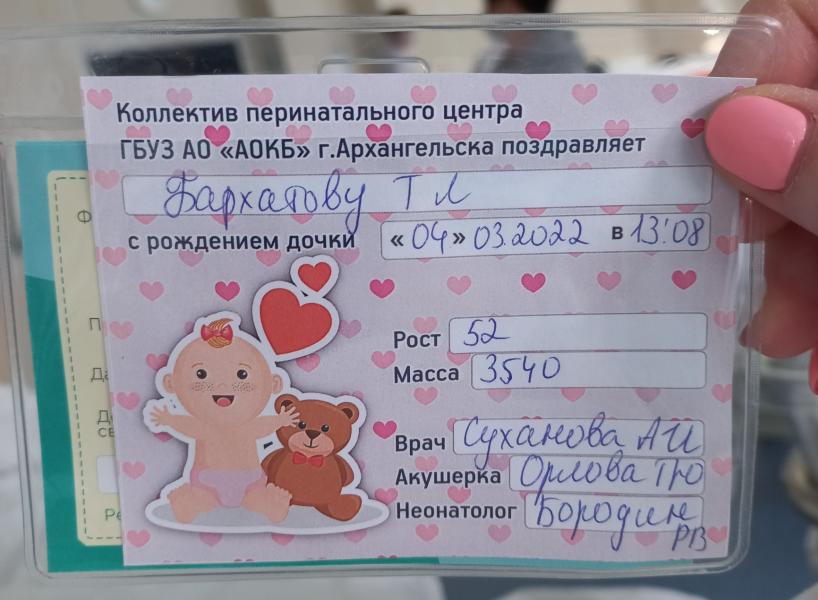 Коллектив перинатального центра
ГБУЗ АО «АОКБ» г.Архангельска поздравляет
Бархатову Т Л
с рождением дочки «04» 03.2022 в 13:08
Рост 52
Масса 3540
Врач Суханова АИ
Акушерка Орлова ТЮ
Неонатолог Бородин
РВ